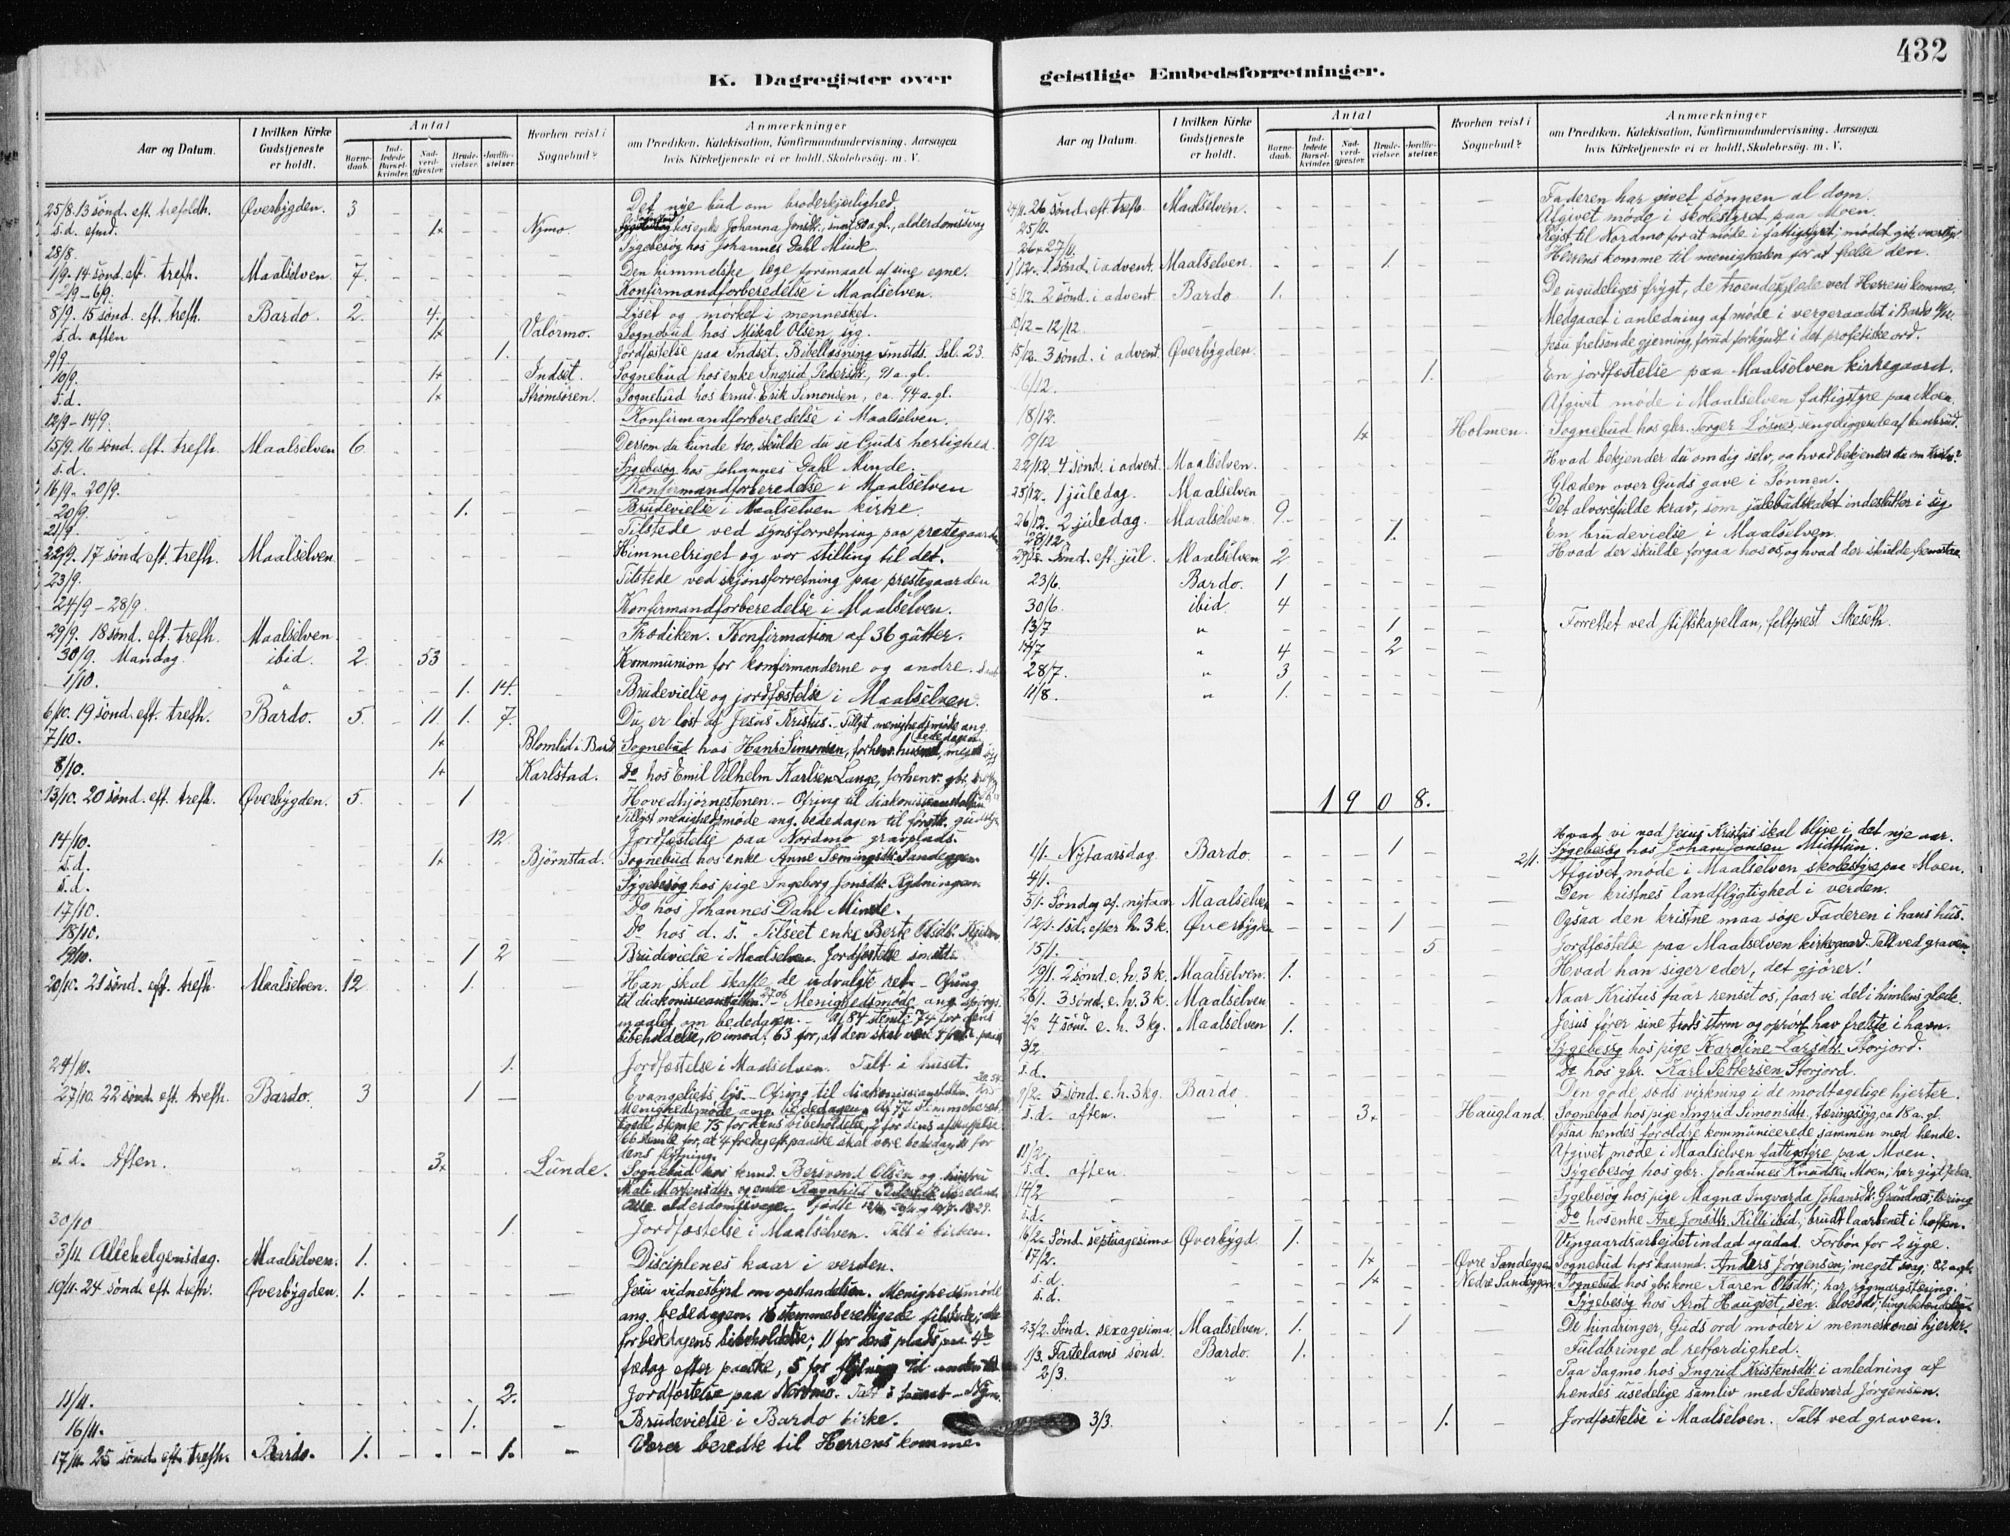 432
K. Dagregister over geistlige Embedsforretninger.
Aar og Datum. I hvilken Kirke Gudstjeneste er holdt. Antal Barnedaab. Indledede Barselkvinder. Nadverdgjæster. Brudevielser. Jordfæstelser. Hvorhen reist i Sognebud? Anmærkninger om Prædiken, Katekisation, Konfirmandundervisning, Aarsagen hvis Kirketjeneste ei er holdt, Skolebesøg, m. V.
25/8. 13 sønd. eft. trefoldh. Øverbygden. 3 Det nye bud om broderkjerlighed.
s.d. efmd. 1+ Nymo. hos enke Johanna alderdomssvag
28/8. Sygebesøg hos Johannes Dahl Minde
1/9. 14 sønd. eft. trefh. Maalselven. 7. Den himmelske læge forsmaaet af sine egne.
2/9–6/9. Konfirmandforberedelse i Maalselven.
8/9. 15 sønd. eft. trefh. Bardo. 2. 4. Lyset og mørket i mennesket.
s.d. aften 1+ Valörmo. Sognebud hos Mikal Olsen, syg.
9/9 1. Jordfæstelse paa Indset. Bibellæsning smstds. Sal. 23.
10/9. 1+ Indset. Sognebud hos enke Ingrid Pedersdt., 91 a. gl.
s.d. 1+ Strømsøren. Sognebud hos krmd. Erik Simonsen, ca. 94 a. gl.
12/9–14/9. Konfirmandforberedelse i Maalselven.
15/9. 16 sønd. eft. trefh. Maalselven 6. Dersom du kunde tro, skulde du se Guds herlighed.
s.d. Sygebesøg hos Johannes Dahl Minde.
16/9–20/9. Konfirmandforberedelse i Maalselven
20/9. 1. Brudevielse i Maalselven kirke.
21/9. Tilstede ved synsforretning paa prestegaarden
22/9. 17 sønd. eft. trefh. Maalselven Himmelriget og vor stilling til det.
23/9. Tilstede ved skjønsforretning paa prestegaarden
24/9–28/9. Konfirmandforberedelse i Maalselven.
29/9. 18 sønd. eft. trefh. Maalselven Prædiken. Konfirmation af 36 gutter.
30/9. Mandag. ibid. 2. 53 Kommunion for konfirmanderne og andre.
1/10. 1. 14. Brudevielse og jordfæstelse i Maalselven.
6/10. 19 sønd. eft. trefh. Bardo. 5. 11. 1. 7. Du er løst af Jesus Kristus. Tillyst menighedsmøde ang. bededagen
7/10. 1+ Blomlid i Bard. Sognebud hos Hans Simonsen, forhenv. husmd,
8/10. 1+ Karlstad. Do hos Emil Vilhelm Karlsen Lange, forhenv. gbr.
13/10. 20 sønd. eft. trefh. Øverbygden. 5. 1 Hovedhjørnestenen. – Ofring til diakonisseanstalten
Tillyst menighedsmøde ang. bededagen til førstk.
14/10. 12. Jordfæstelse paa Nordmo gravplads.
s.d. 1+ Bjørnstad. Sognebud hos enke Anne Sandeggen
s.d. Sygebesøg hos pige Ingeborg Jonsdt. Rydningen
17/10. Do hos Johannes Dahl Minde.
18/10. Do hos d. s. – Tilseet enke Berte Olsdt.
19/10. 1 2 Brudevielse i Maalselven. Jordfæstelse smstds.
20/10. 21 sønd. eft. trefh. Maalselven. 12 1. Han skal skaffe de udvalgte ret. – Ofring
til diakonisseanstalten. – Menighedsmøde ang. spørgs-
maalet om bededagen. – Af 84 stemte 74 for dens
bibeholdelse, 10 imod. 63 for, at den skal være
24/10. 1. Jordfæstelse i Maalselven. Talt i huset.
27/10. 22 sønd. eft. trefh. Bardo. 3 1 Evangeliets lys. – Ofring til diakonisseanstalten
Menighedsmøde ang. bededagen. Af 77 stemmeberet-
tigede, stemte 75 for dens bibeholdelse, 2 for dens afskaffelse.
66 stemte for, at 4 fredag eft. paaske skal være bededag,
dens flytning.
s.d. Aften. 3+ Lunde. Sognebud hos krmd. Olsen og hustru
Mali Mortensdt. og enke Ragnhild Pedersdt.
Alle alderdomssvage, fødte 1829.
30/10 1. Jordfæstelse i Maalselven. Talt i kirken.
3/11 Allehelgensdag. Maalselven. 1. Disciplenes kaar i verden.
10/11. 24 sønd. eft. trefh. Øverbygden. 1. Jesu vidnesbyrd om opstandelsen. Menighedsmøde
ang. bededagen. 16 stemmeberettigede tilstede;
for bededagens bibeholdelse; 11 for dens plads paa 4de
fredag efter paaske, 5 for flytning til anden
11/11. 2. Jordfæstelse paa Nordmo. Talt i
16/11. 1. Brudevielse i Bardo kirke.
17/11. 25 sønd. eft. trefh. Bardo. 1. 1. Værer beredte til Herrens komme.
Aar og Datum. I hvilken Kirke Gudstjeneste er holdt. Antal Barnedaab. Indledede Barselkvinder. Nadverdgjæster. Brudevielser. Jordfæstelser. Hvorhen reist i Sognebud? Anmærkninger om Prædiken, Katekisation, Konfirmandundervisning, Aarsagen hvis Kirketjeneste ei er holdt, Skolebesøg, m. V.
24/11. 26 sønd. eft. trefh. Maalselven. Faderen har givet sønnen al dom.
25/11. Afgivet møde i skolestyret paa Moen.
26–27/11. Reist til Nordmo for at møde i fattigstyret; mødet
1/12. 1. sønd. i advent. Maalselven. 1. Herrens komme til menigheden for at frelse den.
8/12. 2 sønd. i advent. Bardo. 1. De ugudeliges frygt, de troendes glæde ved Herrens komme.
10/12–12/12. Medgaaet i anledning af møde i vergeraadet i Bardo
15/12. 3 sønd. i advent. Øverbygden. Jesu frelsende gjerning, forud forkyndt i det profetiske ord.
6/12. 1. En jordfæstelse paa Maalselven kirkegaard.
18/12. Afgivet møde i Maalselven fattigstyre paa Moen.
19/12 1+ Holmen. Sognebud hos gbr. Torger Løsnes, sengeliggende af benbrud.
22/12. 4 sønd. i advent. Maalselven. Hvad bekjender du om dig selv, og hvad bekjender du om Kristus?
25/12. 1 juledag. Maalselven Glæden over Guds gave i Sønnen.
26/12. 2 juledag. Maalselven. 9. Det alvorsfulde krav, som julebudskabet indeslutter i sig
28/12. 1. En brudevielse i Maalselven.
29/12. Sønd. eft. jul. Maalselven 2 Hvad der skulde forgaa hos os, og hvad der skulde fremstaa.
23/6. Bardo. 1
30/6. ibid. 4
13/7 " 1 Forrettet ved stiftskapellan, feltprest Skeseth.
14/7 " 4 2
28/7. " 3
11/8. " 1.
1908.
1/1. Nytaarsdag. Bardo. 1 Hvad vi ved Jesus Kristus skal blive i det nye aar.
2/1. Sygebesøg hos Johan Jonsen Midttun.
4/1. Afgivet møde i Maalselven skolestyre paa Moen.
5/1. Søndag ef. nytaar Maalselven Den kristnes landflygtighed i verden.
12/1. 1 sd. efter h. 3 k. Øverbygden 1 Ogsaa den kristne maa søge Faderen i hans hus.
15/1. 5 Jordfæstelse paa Maalselven kirkegaard. Talt ved graven.
19/1. 2 sønd. e. h. 3 k. Maalselven. 1. Hvad han siger eder, det gjører!
26/1. 3 sønd. e. h. 3 k. Maalselven Naar Kristus faar renset os, faar vi del i himlens glæde.
2/2 4 sønd. e. h. 3 kg. Maalselven 1. Jesus fører sine trods storm og oprørt hav frelste i havn.
3/2. Sygebesøg hos pige Karoline Larsdt. Storjord.
s.d. Do hos gbr. Karl Pettersen Storjord.
9/2. 5 sønd. e. h. 3 kg. Bardo. Den gode sæds virkning i de modtagelige hjerter.
s.d. aften. 3+ Haugland. Sognebud hos pige Ingrid Simonsdt., tæringssyg, ca 18 a. gl.
Ogsaa hendes forældre kommunicerede sammen med hende.
11/2. Afgivet møde i Maalselven fattigstyre paa Moen.
s.d. aften. Sygebesøg hos gbr. Johannes Knudsen Moen, har gigtfeber.
14/2 Sygebesøg hos pige Magna Ingvarda Johansdt. Grundnes; tæring
s.d. Do hos enke Ane Jonsdt. Killi ibid; brudt laarbenet i hoften.
16/2. Sønd. septuagesima Øverbygd. 1. Vingaardsarbeidet indad og udad. Forbøn for 2 syge.
17/2. 1+ Øvre Sandeggen Sognebud hos kaarmd. Anders Jørgensen; meget svag; 82 a. gl.
s.d. 1+ Nedre Sandeggen Sognebud hos gbr. kone Karen Olsdt.; har rygmargstæring.
s.d. Sygebesøg hos Arnt Haugset, sen.
23/2. Sønd. sexagesima. Maalselven. 1. 1 De hindringer, Guds ord møder i menneskenes hjerter.
1/3. Fastelavns sønd. Bardo. 1. Fuldbringe al retfærdighed.
2/3. Paa Sagmo hos Ingrid Kristensdt. i anledning af
hendes usedelige samliv med Sedevard Jørgensen.
3/3. 1. Jordfæstelse i Maalselven. Talt ved graven.